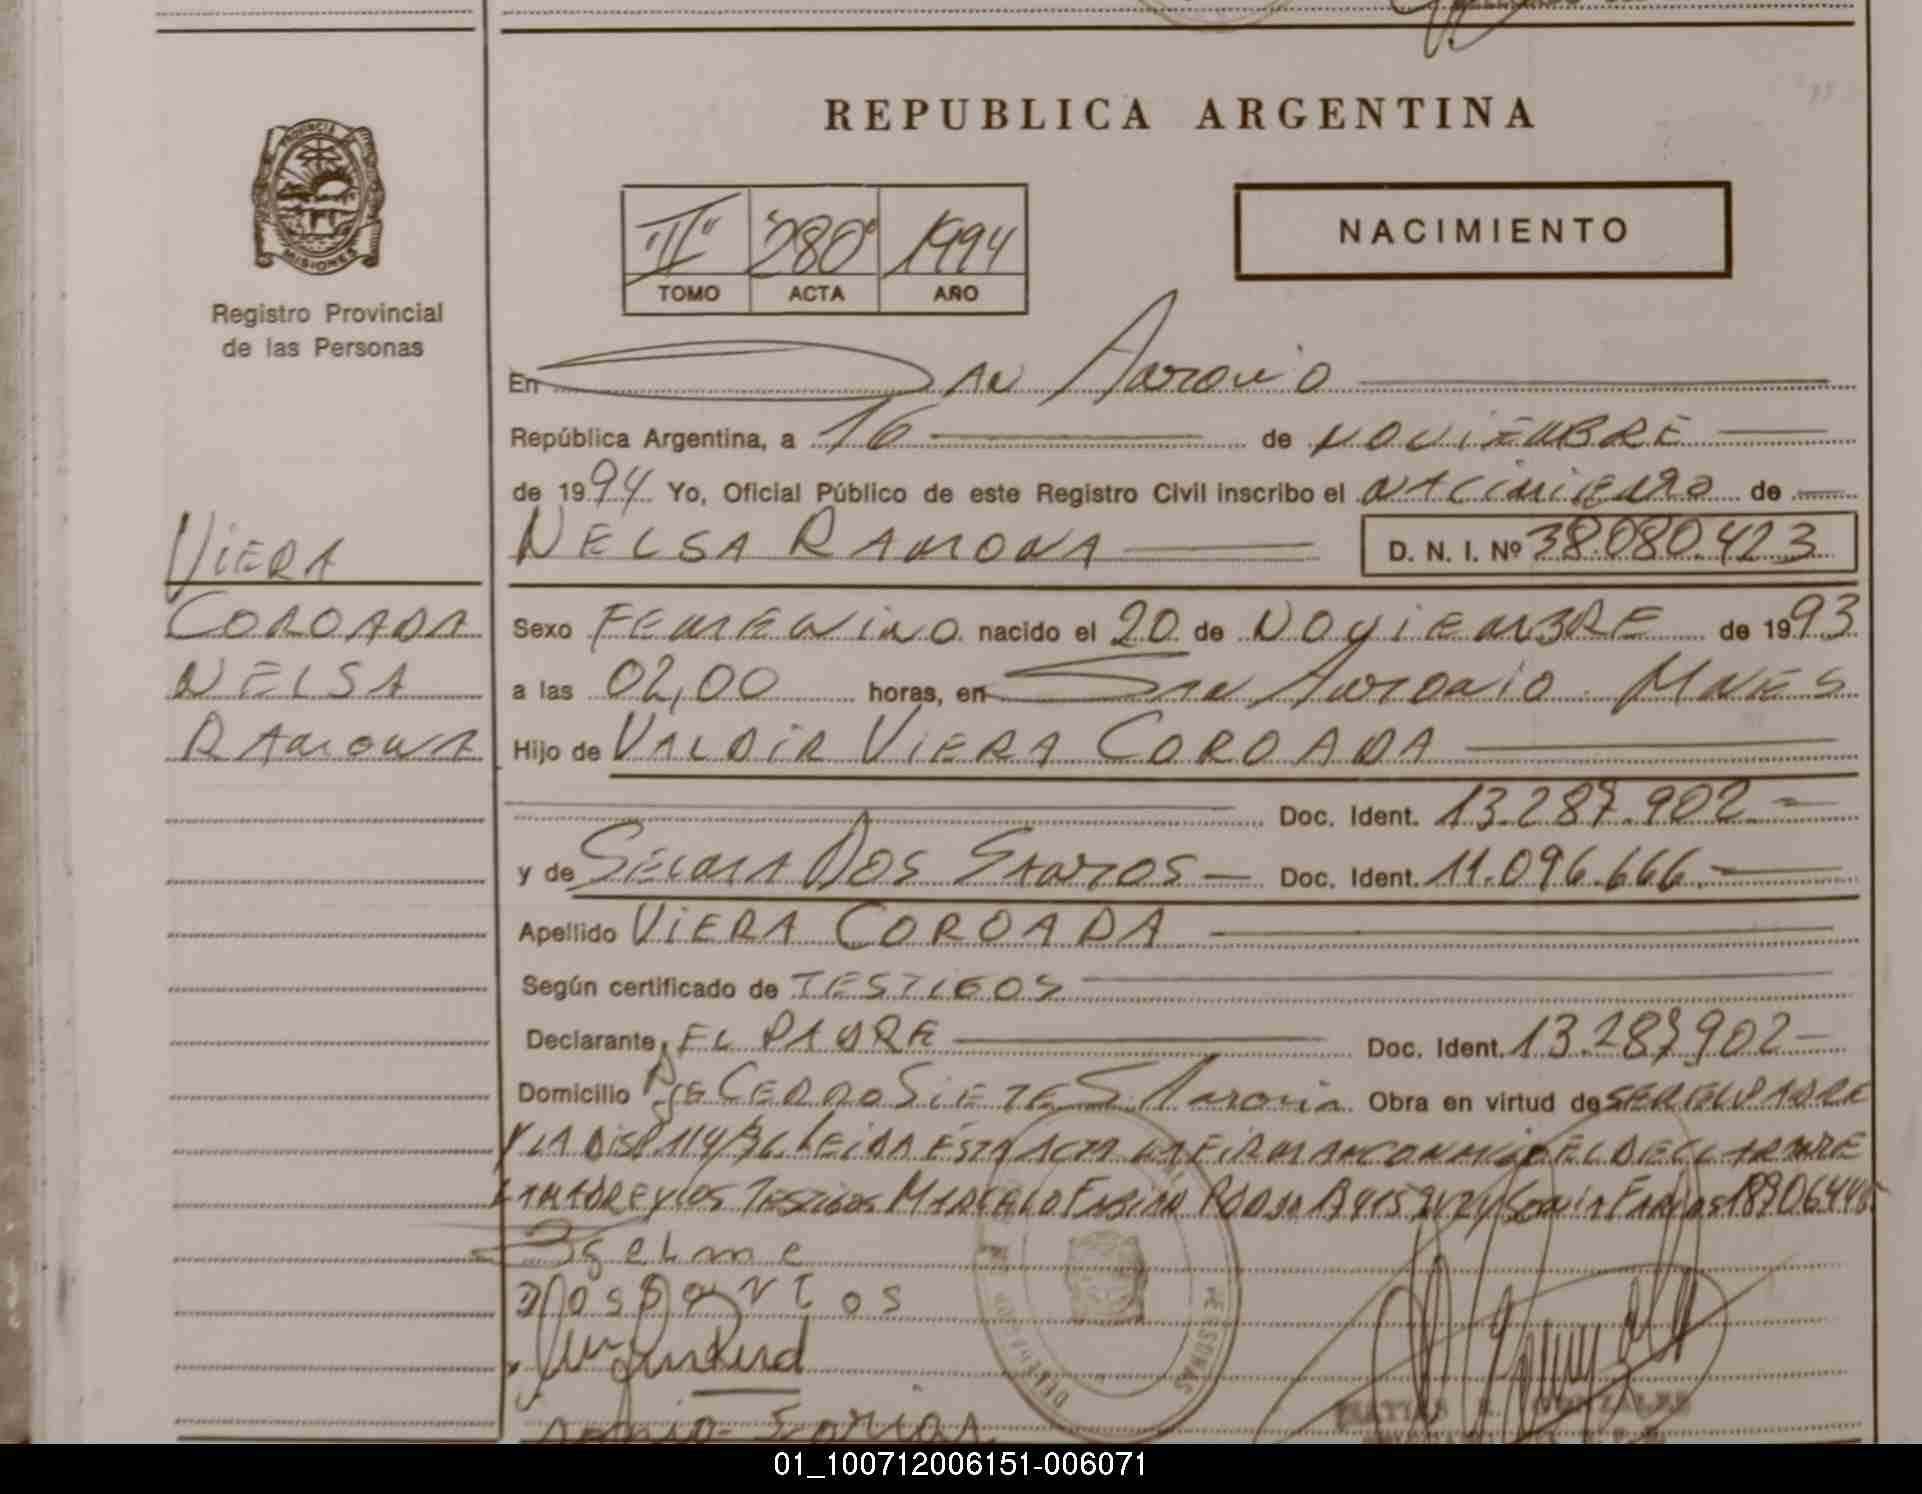 REPUBLICA ARGENTINA
PROVINCIA DE
MISIONES
Registro Provincial
de las Personas
"II" "280" 1994
TOMO ACTA AÑO
NACIMIENTO
En San Antonio
República Argentina, a 16 de NOVIEMBRE
de 1994 Yo, Oficial Público de este Registro Civil inscribo el NACIMIENTO de
NELSA RAMONA D. N. I. Nº 38.080.423
VIERA
COROADA
NELSA
RAMONA
Sexo FEMENINO nacido el 20 de NOVIEMBRE de 1993
a las 02,00 horas, en SAN ANTONIO MNES
Hijo de VALDIR VIERA COROADA
Doc. Ident. 13.287.902
y de SELMA DOS SANTOS Doc. Ident. 11.096.666
Apellido VIERA COROADA
Según certificado de TESTIGOS
Declarante EL PADRE Doc. Ident. 13.287.902
Domicilio Pje CERRO SIETE S. Antonio Obra en virtud de SER EL PADRE
Y LA DISP. 114/ LEIDA ESTA ACTA LA FIRMAN CONMIGO EL DECLARANTE
LA MADRE Y LOS TESTIGOS MARCELO FABIAN Sonia Farias
selme
Dos Santos
Sonia Farias
DELEGADO
PERSONAS
GONZALEZ
01_100712006151-006071